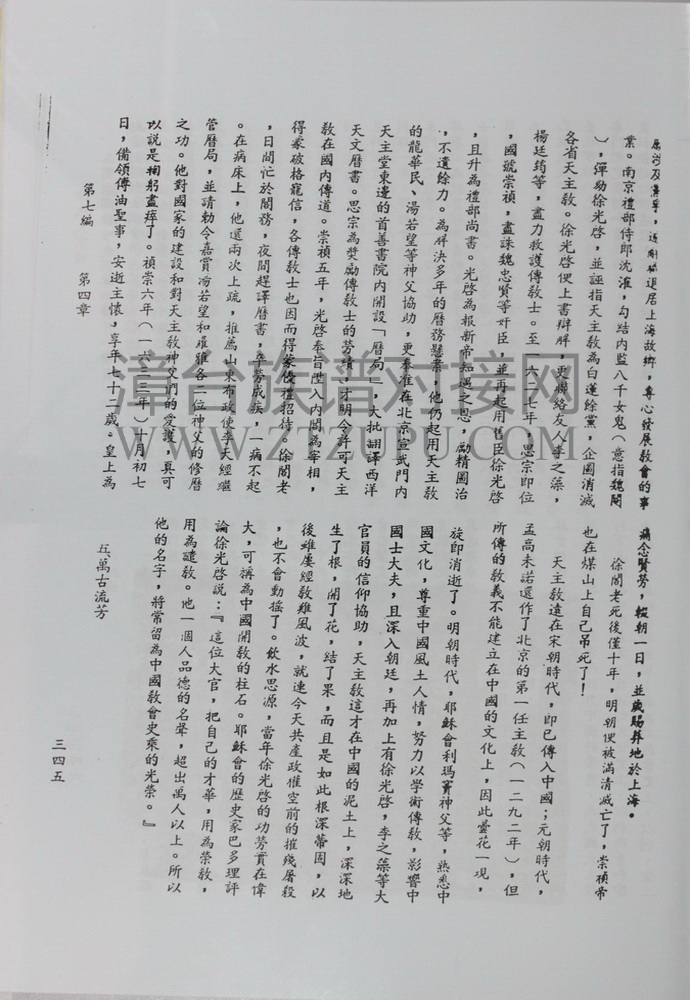 退居上海故鄉,專心發展敎會的事
業。南京禮部侍郎沈㴶,勾結內監八千女鬼(意指魏閹
),彈劾徐光啓,並誣指天主敎為白蓮餘黨,企圖消滅
各省天主敎。徐光啓便上書辯解,更聯絡友人李之藻,
楊廷筠等,盡力救護傳敎士。至一六二七年,思宗卽位
,國號崇禎,盡誅魏忠賢等奸臣,並再起用舊臣徐光啓
,且升為禮部尚書。光啓為報新帝知遇之恩,勵精圖治
,不遺餘力。為解決多年的曆務懸案,他仍起用天主敎
的龍華民、湯若望等神父協助,更奉准在北京宣武門內
天主堂東邊的首善書院內開設「曆局」,大批翻譯西洋
天文曆書。思宗為奬勵傳敎士的勞績,才明令許可天主
敎在國內傳道。崇禎五年,光啓奉旨陞入內閣為宰相,
得蒙破格寵信,各傳敎士也因而得蒙優禮招待。徐閣老
,日間忙於閣務,夜間趕譯曆書,辛勞成疾,一病不起
。在病床上,他還兩次上疏,推薦山東布政使李天經繼
管曆局,並請勅令嘉賞湯若望和羅雅各二位神父的修曆
之功。他對國家的建設和對天主敎神父們的愛護,眞可
以說是鞠躬盡瘁了。禎崇六年(一六三三年)十月初七
日,備領傅油聖事,安逝主懷,享年七十二歲。皇上為
痛念賢勞,輟朝一日,並歲賜葬地於上海。
徐閣老死後僅十年,明朝便被滿清滅亡了,崇禎帝
也在煤山上自己吊死了!
天主敎遠在宋朝時代,卽已傳入中國;元朝時代,
孟高未諾還作了北京的第一任主敎(一二九二年),但
所傳的敎義不能建立在中國的文化上,因此曇花一現,
旋卽消逝了。明朝時代,耶穌會利瑪竇神父等,熟悉中
國文化,尊重中國風土人情,努力以學術傳敎,影響中
國士大夫,且深入朝廷,再加上有徐光啓,李之藻等大
官員的信仰協助,天主敎這才在中國的泥土上,深深地
生了根,開了花,結了果,而且是如此根深蒂固,以
後雖屢經敎難風波,就連今天共產政權空前的摧殘屠殺
,也不會動搖了。飲水思源,當年徐光啓的功勞實在偉
大,可稱為中國開敎的柱石。耶穌會的歷史家巴多理評
論徐光啓說:『這位大官,把自己的才華,用為榮敎,
用為護敎。他一個人品德的名聲,超出萬人以上。所以
他的名字,將常留為中國敎會史乘的光榮。』
五、萬古流芳
第七編 第四章
三四五
漳台族谱对接网
WWW.ZTZUPU.COM